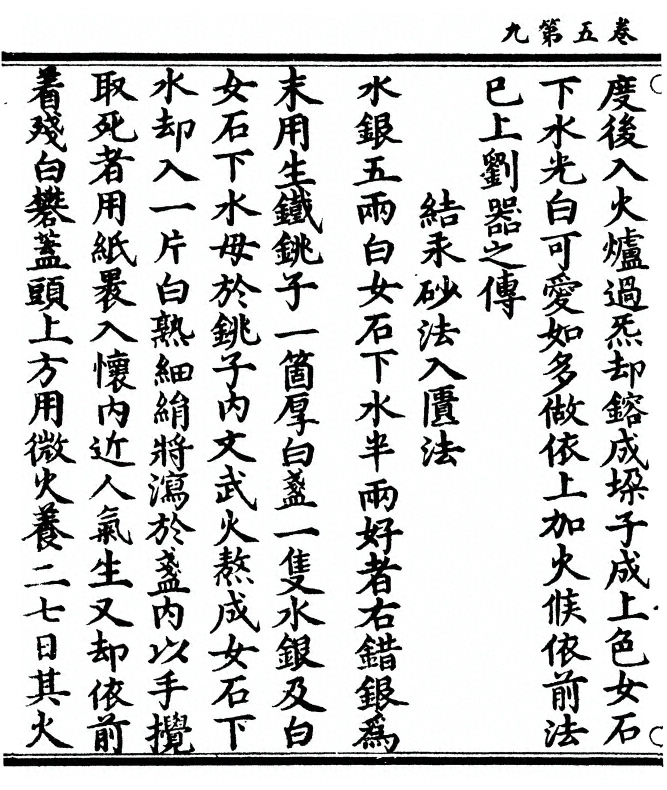 卷五第九
度後入火爐過炁却鎔成垜子成上色女石
下水光白可愛如多做依上加火候依前法
已上劉器之傳
結汞砂法入匱法
水銀五兩白女石下水半兩好者右錯銀爲
末用生鐵銚子一箇厚白盞一隻水銀及白
女石下水母於銚子內文武火熬成女石下
水却入一片白熟細絹將瀉於盞內以手攪
取死者用紙裹入懷內近人氣生又却依前
着殘白礬蓋頭上方用微火養二七日其火